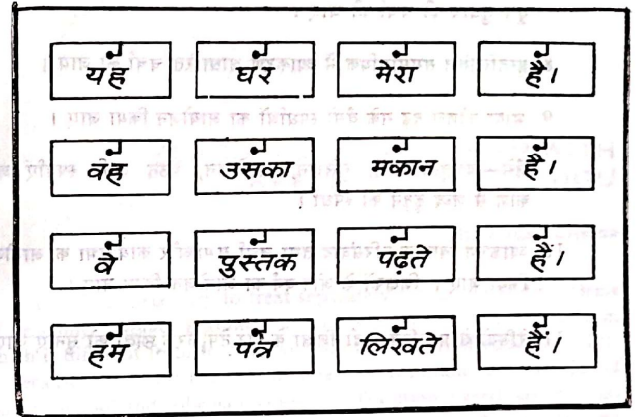 यह घर मेरा है।
वह उसका मकान है।
वे पुस्तक पढ़ते हैं।
हम पत्र लिखते हैं।